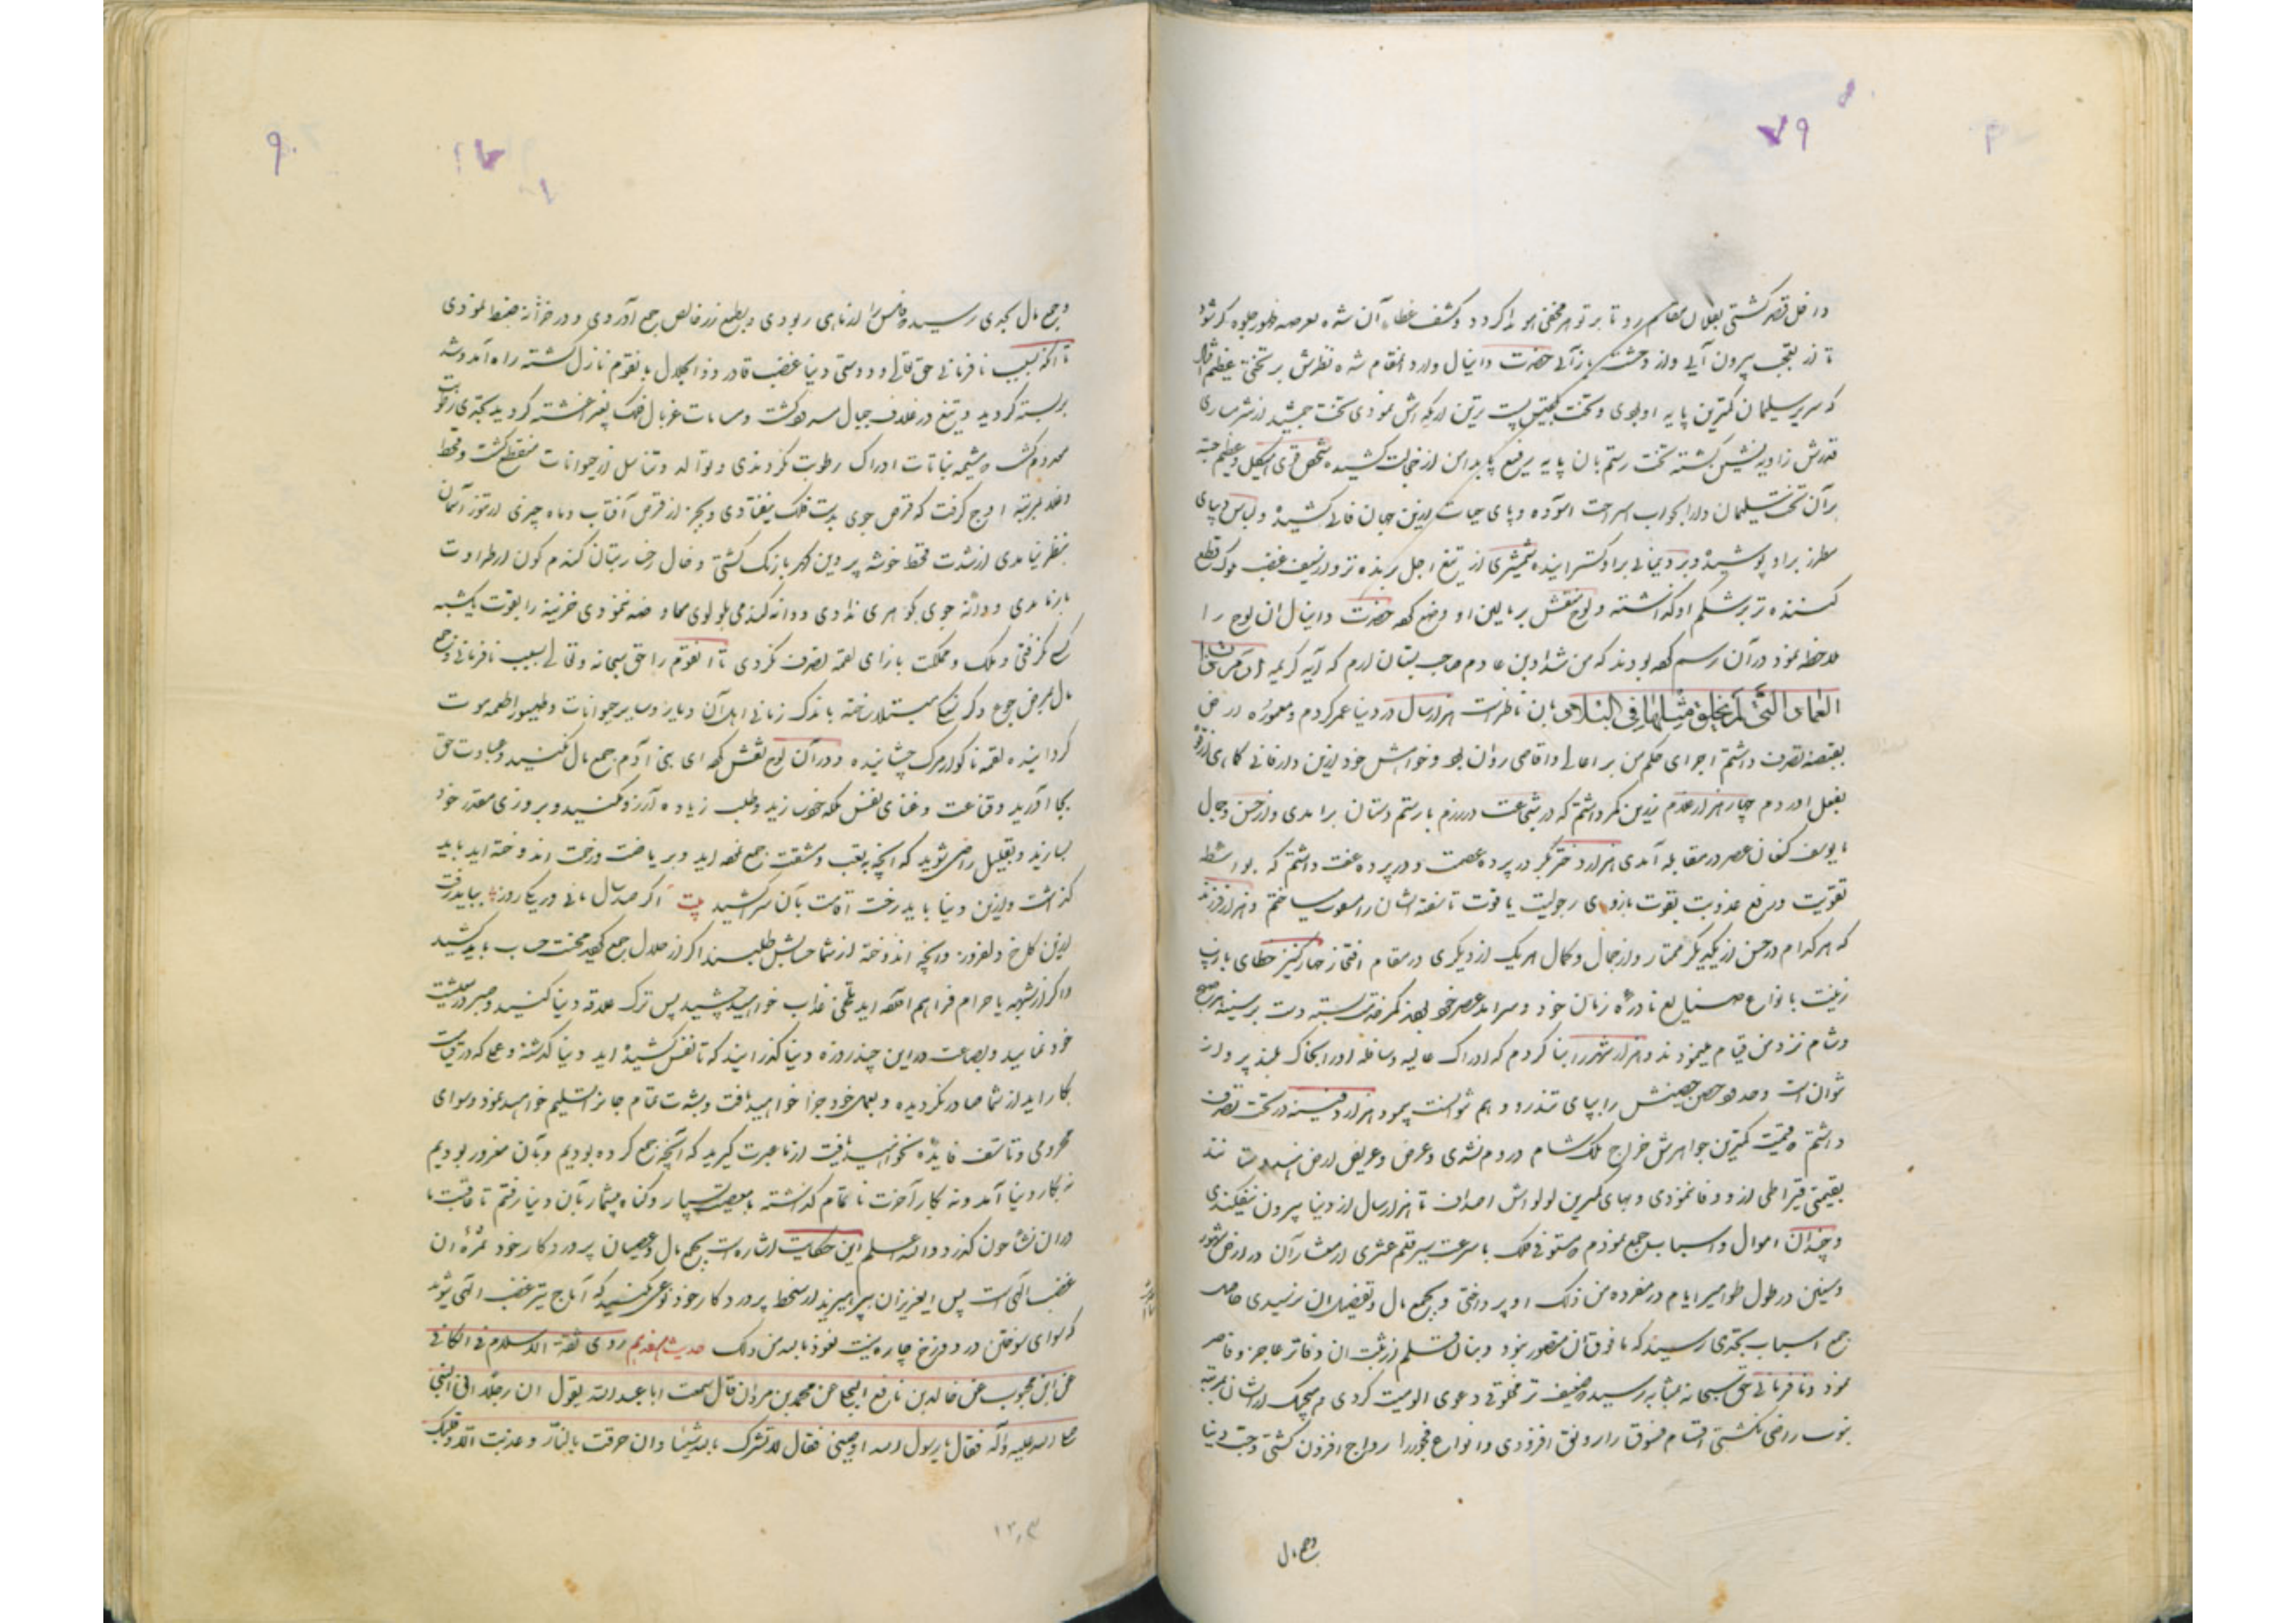 ۷۹
داخل قصر کشتی بفلان مقام رو تا بر تو هر مخفی هویدا گردد و کشف غطاء آن شده بعرصه ظهور جلوه گر شود
تا از تعجب بیرون آیی و از دهشت باز آیی حضرت دانیال وارد انمقام شده نظرش بر تختی عظیم افتاد
که سریر سلیمان کمترین پایه او بودی و تخت پست ترین اریکه اش نمودی تخت جمشید از شرمساری
قدرش زاویه نشین گشته تخت رستم بان پایه رفیع پا بدامن از خجالت کشیده شخصی قوی هیکل و عظیم جثه
بر آن تخت سلیمان وار بخواب استراحت آسوده و پای حیات ازین جهان فانی کشیده و لباس دیبای
مطرز براو پوشیده و برد یمانی براو گسترانیده شمشیری از تیغ اجل برنده تر و از سیف غضب ملوک قطع
کننده تر بر شکم او گذاشته و لوح منقش بر بالین او وضع کرده حضرت دانیال ان لوح را
ملاحظه نمود در آن رسم کرده بودند که من شداد بن عاد صاحب بستان ارم که آیه کریمه ارم ذات
العماد التی لم یخلق مثلها فی البلاد بان ناظر است هزار سال در دنیا عمر کردم و معموره در من
بقبضه تصرف داشتم اجرای حکم من بر اعالی و اقاصی روان بود و خواهش خود ازین دار فانی
بفعل اوردم چهار هزار غلام زرین کمر داشتم که در شجاعت در رزم با رستم دستان برامدی و از حسن و جمال
با یوسف کنعان عصر در مقابله آمدی هزار دختر بکر در پرده عصمت و در پرده عفت داشتم که بواسطه
تقویت و رفع عذوبت بقوت بازوی رجولیت یاقوت ناسفته ایشان را میساختم و هزار فرزند
که هر کدام در حسن از یکدیگر ممتاز و از جمال و کمال هر یک از دیگری در مقام افتخار چهار کنیز خطای با زیب
زینت بانواع صنایع نادره زمان خود و سرامد عصر خود بودند کمر خدمت بسته دست بر سینه هر صبح
و شام نزد من قیام مینمودند و هزار شهر را بنا کردم که ادراک عالیه و سافله او را بخاک بلند پرواز
نتوان است و حدود حصن حصینش را بپای تندرو وهم نتوانست پیمود هزار دفینه در تحت تصرف
داشتم که قیمت کمترین جواهرش خراج ملک شام و روم نشدی و عرض و عریض ارض هندوستان
بقیمتی قیراطی از و وفا ننمودی و بهای کمترین لولو اش اصداف تا هزار سال از دنیا بیرون نیفکندی
و چندان اموال و اسباب جمع نمودم که مستوفی فلک با سرعت سیر قلم عشری از معشار آن در ارض شهور
و سنین در طول طوامیر ایام در مفرده من ذلک او پرداختی و بجمع مال و تفصیل ان نرسیدی حاصل
جمع اسباب بحدی رسید که ما فوق آن متصور نبود و بنان قلم از ثبت ان دفاتر عاجز و قاصر
نمود و نافرمانی حق سبحانه بمثابه رسید ضعیف تر مخلوقی دعوی الوهیت کردی و هیچیک از ایشان بمرتبه
نبوت راضی نگشتی اقسام فسوق را رونق افزودی و انواع فجور را رواج افزون گشتی و حب دنیا
و جمع مال
۹۰
و جمع مال بحدی رسید که فلس را از ماهی ربودی و بطمع زر خالص جمع آوردی و در خزانه ضبط نمودی
تا آنکه بسبب نافرمانی حق تعالی و دوستی دنیا غضب قادر ذوالجلال بانقوم نازل گشته راه آمد و شد
بربسته گردید و تیغ در غلاف جبال مسدود گشت و مسامات غربال فلک بغیر آغشته گردید بحدی که رطوبت
معدوم گشت که شیمه نباتات ادراک رطوبت نکردندی و توالد و تناسل از حیوانات منقطع گشت و قحط
و غلا بمرتبه اوج گرفت که قرص جوی بدست فلک نیفتادی و بجز از قرص آفتاب و ماه چیزی از تنور آسمان
بنظر نیامدی از شدت قحط خوشه پروین و خال رخسار بتان گندم گون از طراوت
بار نامدی و دانه جوی بکوهری ندادی و دانه گندمی بلولوی معاوضه ننمودی خزینه را بقوت یکشبه
کس نگرفتی و ملک و مملکت بازای لقمه تصرف نکردی تا انقوم را حق سبحانه و تعالی بسبب نافرمانی و جمع
مال بمرض جوع و گرسنگی مبتلا ساخته باندک زمانی اهل آن دیار و سایر حیوانات و طیور را طعمه موت
گردانیده لقمه ناگوار مرگ چشانیده و در آن لوح نقش کرده ای بنی آدم جمع مال نکنید و عبادت حق
بجا آورید و قناعت و غنای نفس ملکه خود سازید و طلب زیاده آرزو مکنید و بروزی مقدر خود
بسازید و بقلیل راضی شوید که آنچه بتعب و مشقت جمع کرده اید و بریاضت و زحمت اندوخته اید باید
گذاشت و ازین دنیا باید رفت آن سرا کشید بیت اگر صد سال مانی ور یکی روز بباید رفت
ازین کاخ دلفروز و آنچه اندوخته از شما حسابش طلبند اگر از حلال جمع کرده محنت حساب باید کشید
و اگر از شبهه یا حرام فراهم آورده اید تلخی عذاب خواهید چشید پس ترک علاقه دنیا کنید و صبر در معیشت
خود نمایید و بضاعت در این چند روزه دنیا گذرانید که تا نفس کشیده اید دنیا گذشته و عملی که در قیامت
بکار آید از شما صادر نگردیده و بعمل خود جزا خواهید یافت و بشدت تمام جان تسلیم خواهید نمود و سوای
محرومی و تاسف فایده نخواهید یافت از ما عبرت گیرید که آنچه جمع کرده بودیم و بآن مغرور بودیم
نه بکار دنیا آمد و نه بکار آخرت تمام گذاشته با معصیت بسیار و گناه بیشمار بآن دنیا رفتم تا عاقبت ما
در ان نشاه چون گذرد والله اعلم این حکایت اشاره است بجمع مال و عصیان پروردکار خود ثمره ان
غضب الهی است پس ای عزیزان بپرهیزید از سخط پروردکار خود و نوعی مکنید که آماج تیر غضب الهی شوید
که سوای سوختن در دوزخ چاره نیست نعوذ بالله من ذلک حدیث هفدهم روی ثقة الاسلام فی الکافی
عن ابن محبوب عن خالد بن نافع البجلی عن محمد بن مروان قال سمعت ابا عبدالله یقول ان رجلا اتی النبی
صلی الله علیه و آله فقال یا رسول الله اوصنی فقال لا تشرک بالله شیئا و ان حرقت بالنار و عذبت الا و قلبک